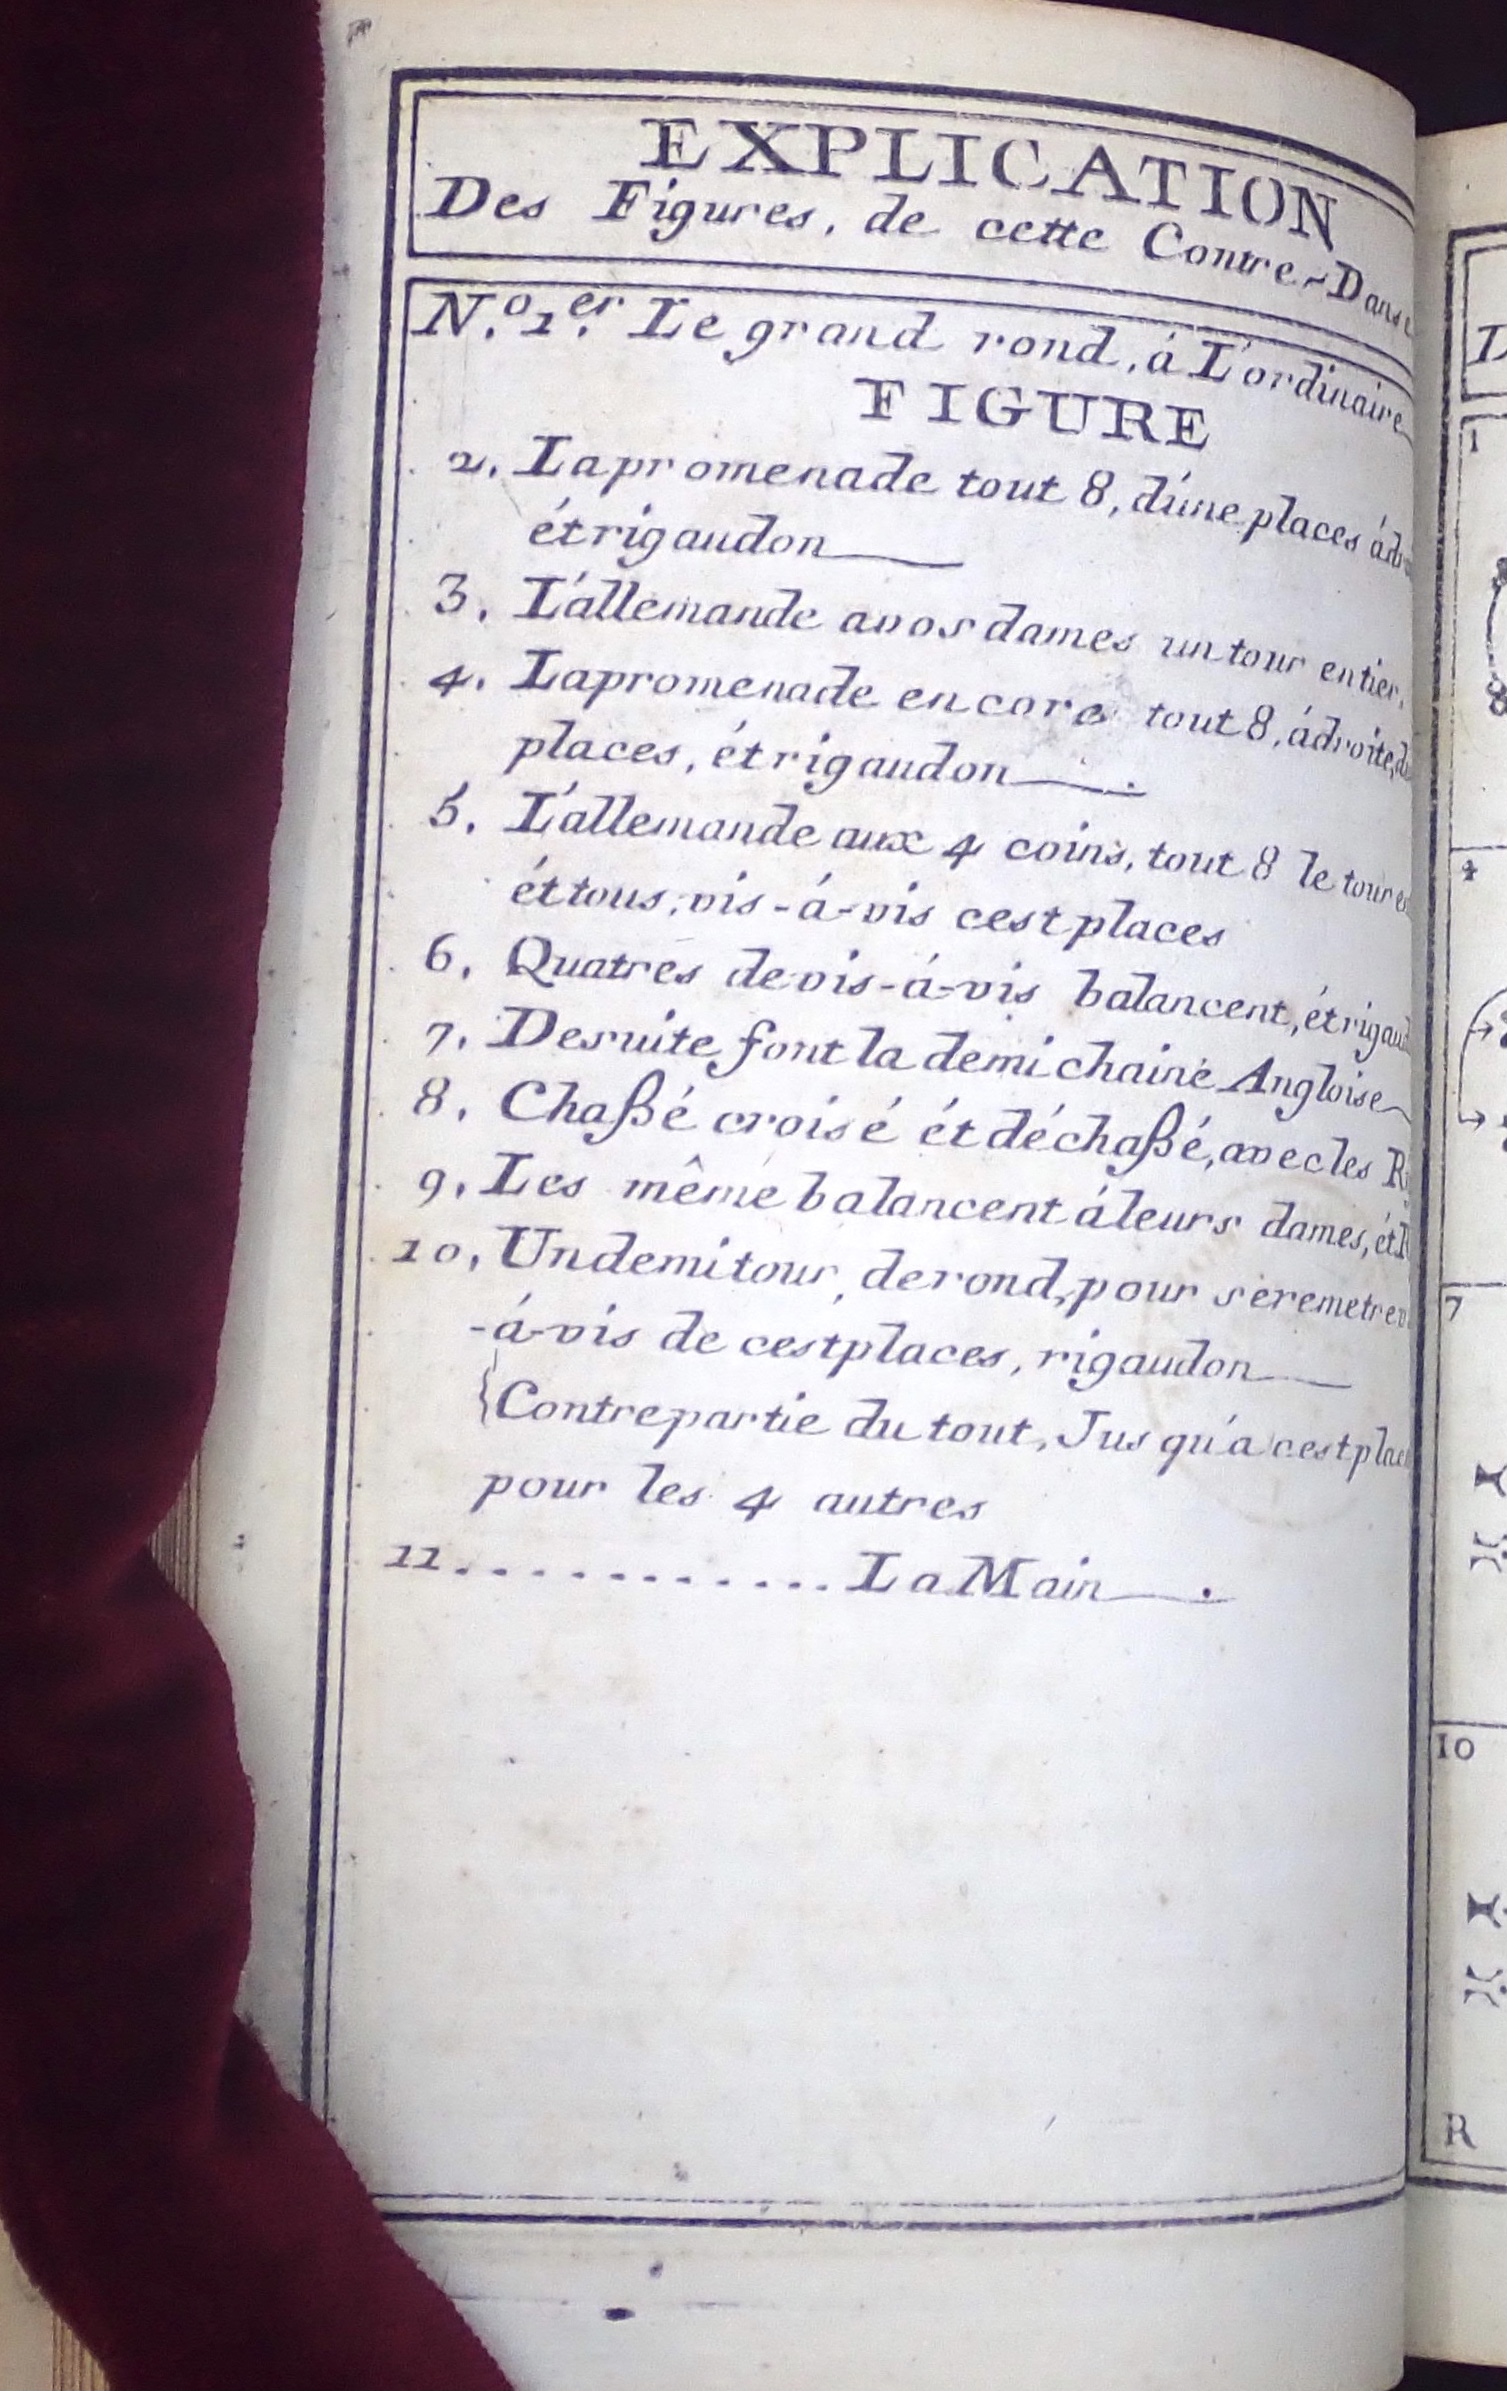 EXPLICATION
Des Figures, de cette Contre-Danse
N.º 1.er Le grand rond, á L'ordinaire
FIGURE
2. Lapromenade tout 8, d'úne places
étrigaudon
3. L'allemande avos dames un tour entier.
4. Lapromenade encore tout 8, ádroite,
places, étrigaudon.
5. L'allemande aux 4 coins, tout 8 le tour
éttous, vis-á-vis cestplaces
6. Quatres devis-á-vis balancent,
7. Desuite font la demi chaine Angloise
8. Chaßé croisé étdéchaßé, avecles
9. Les même balancent áleurs dames,
10. Undemitour, derond, pour
-á-vis de cestplaces, rigaudon
{Contrepartie du tout, Jusqu'a
pour les 4 autres
11............ La Main.
1
4
7
10
R